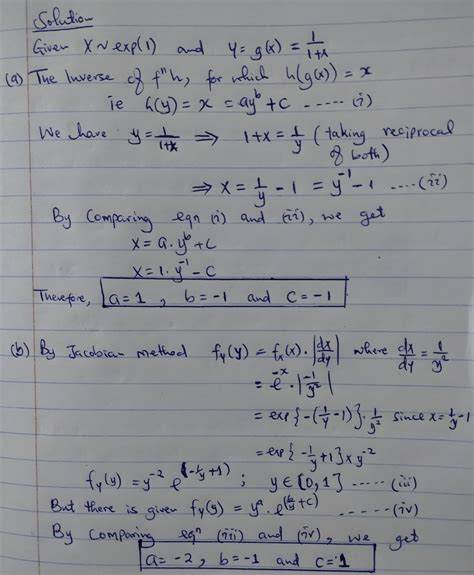 Solution
Given X ~ exp(1) and Y = g(x) = 1/(1+x)
(a) The Inverse of fⁿ h, for which h(g(x)) = x
ie h(y) = x = ay^b + c ----- (i)
We have y = 1/(1+x) ⟹ 1+x = 1/y (taking reciprocal
of both)
⟹ x = 1/y - 1 = y^-1 - 1 .... (ii)
By comparing eqn (i) and (ii), we get
x = a. y^b + c
x = 1. y^-1 - c
Therefore, a = 1, b = -1 and c = -1
(b) By Jacobian method f_Y(y) = f_X(x). |dx/dy| where dx/dy = 1/y^2
= e^-x . |-1/y^2|
= exp{-(1/y - 1)}. 1/y^2 since x = 1/y - 1
= exp{-1/y + 1} x y^-2
f_Y(y) = y^-2 e^(-1/y + 1) ; y ∈ [0,1] ..... (iii)
But there is given f_Y(y) = y^a . e^(b/y + c) ----- (iv)
By comparing eqⁿ (iii) and (iv), we get
a = -2, b = -1 and c = 1